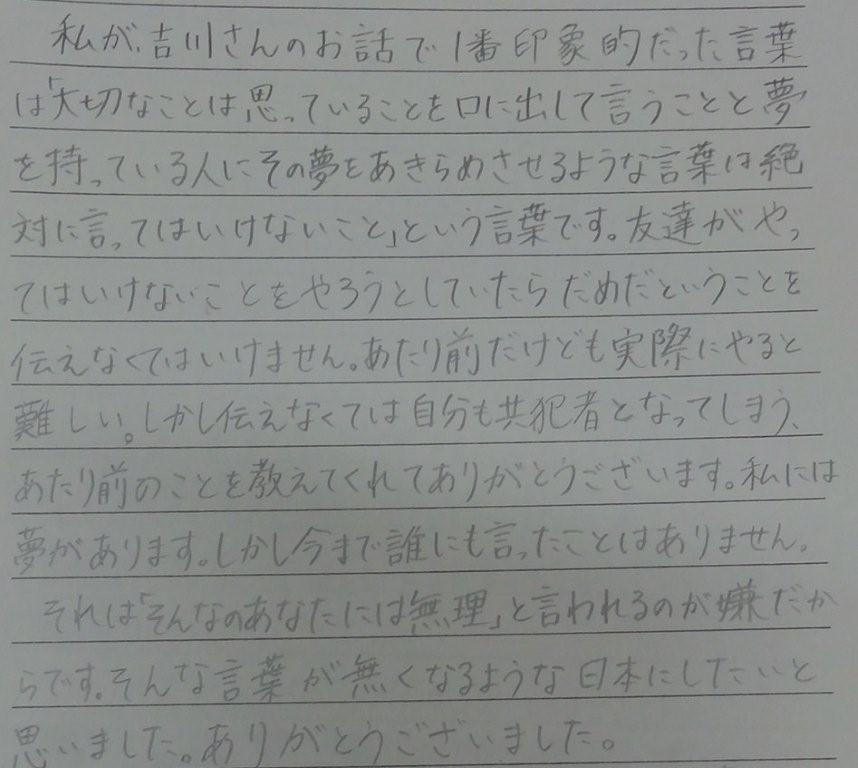 私が、吉川さんのお話で1番印象的だった言葉
は「大切なことは思っていることを口に出して言うことと夢
を持っている人にその夢をあきらめさせるような言葉は絶
対に言ってはいけないこと」という言葉です。友達がやっ
てはいけないことをやろうとしていたらだめだということを
伝えなくてはいけません。あたり前だけども実際にやると
難しい。しかし伝えなくては自分も共犯者となってしまう、
あたり前のことを教えてくれてありがとうございます。私には
夢があります。しかし今まで誰にも言ったことはありません。
それは「そんなのあなたには無理」と言われるのが嫌だか
らです。そんな言葉が無くなるような日本にしたいと
思いました。ありがとうございました。